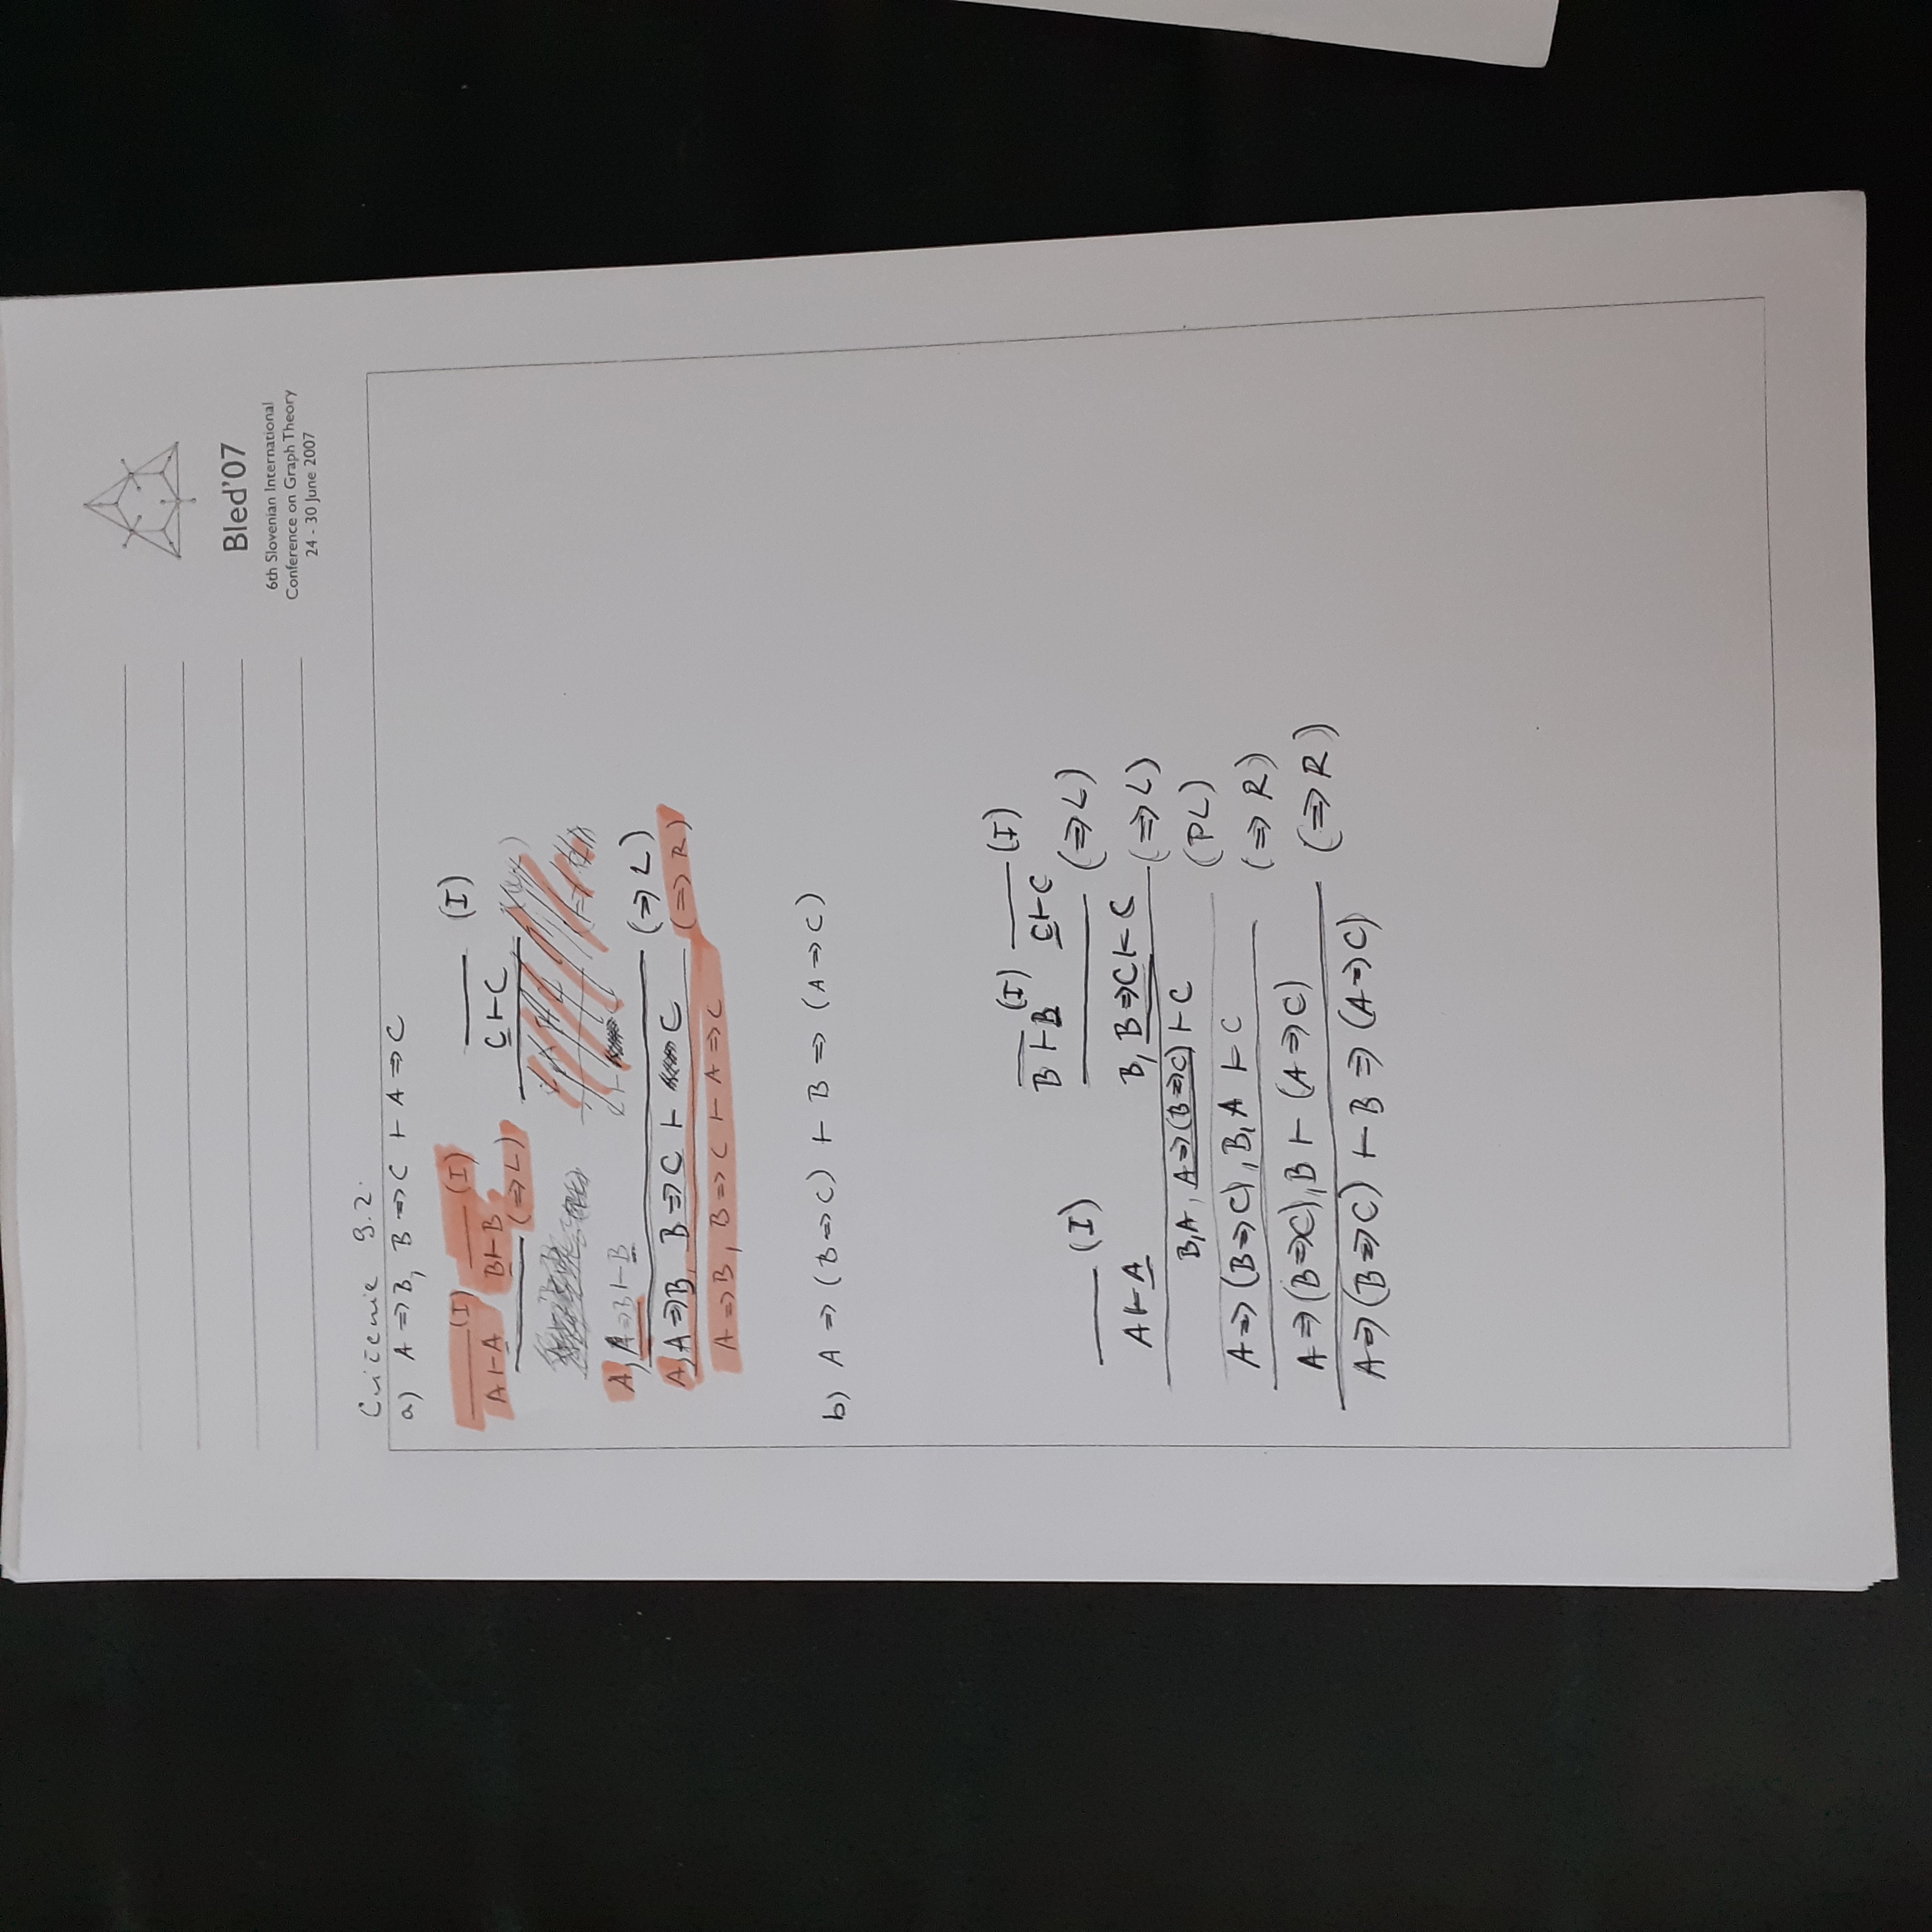 Bled'07
6th Slovenian International
Conference on Graph Theory
24 - 30 June 2007
9.2.
a) A ⇒ B, B ⇒ C ⊢ A ⇒ C
(I) (I) (I)
A ⊢ A B ⊢ B (⇒ L) C ⊢ C
A, A ⇒ B ⊢ B
(⇒ L)
A, A ⇒ B, B ⇒ C ⊢ C
(⇒ R)
A ⇒ B, B ⇒ C ⊢ A ⇒ C
b) A ⇒ (B ⇒ C) ⊢ B ⇒ (A ⇒ C)
(I) (I)
B ⊢ B C ⊢ C
(I) (⇒ L)
A ⊢ A B, B ⇒ C ⊢ C
(⇒ L)
B, A, A ⇒ (B ⇒ C) ⊢ C
(PL)
A ⇒ (B ⇒ C), B, A ⊢ C
(⇒ R)
A ⇒ (B ⇒ C), B ⊢ (A ⇒ C)
(⇒ R)
A ⇒ (B ⇒ C) ⊢ B ⇒ (A ⇒ C)